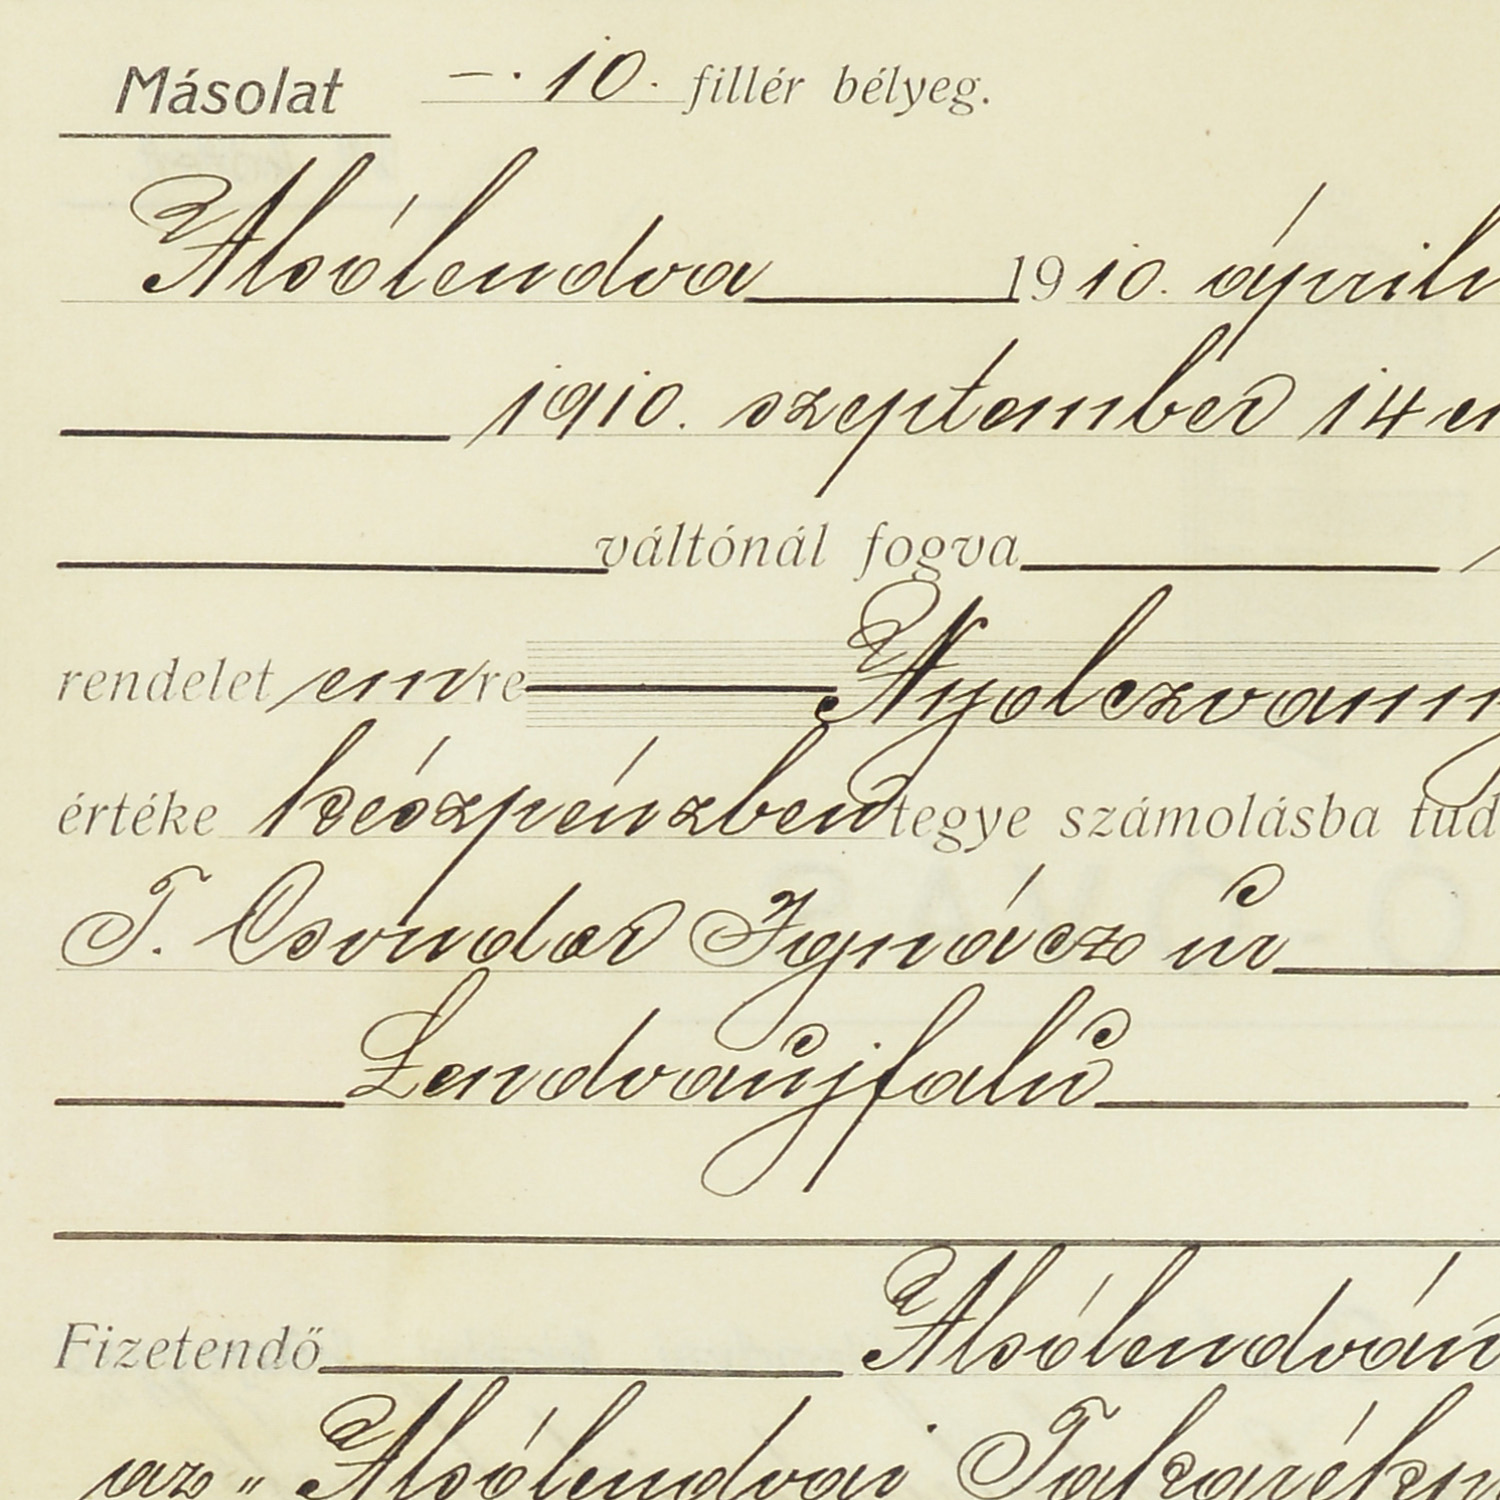 Másolat —. 10. fillér bélyeg.
Alsólendva 1910. ápril
1910. szeptember 14 en
váltónál fogva
rendelet em re Nyolczvann
értéke készpénzben tegye számolásba tud
T. Csondor Ignácz úr
Lendvaújfalú
Fizetendő Alsólendván
az „Alsólendvai Takarékp